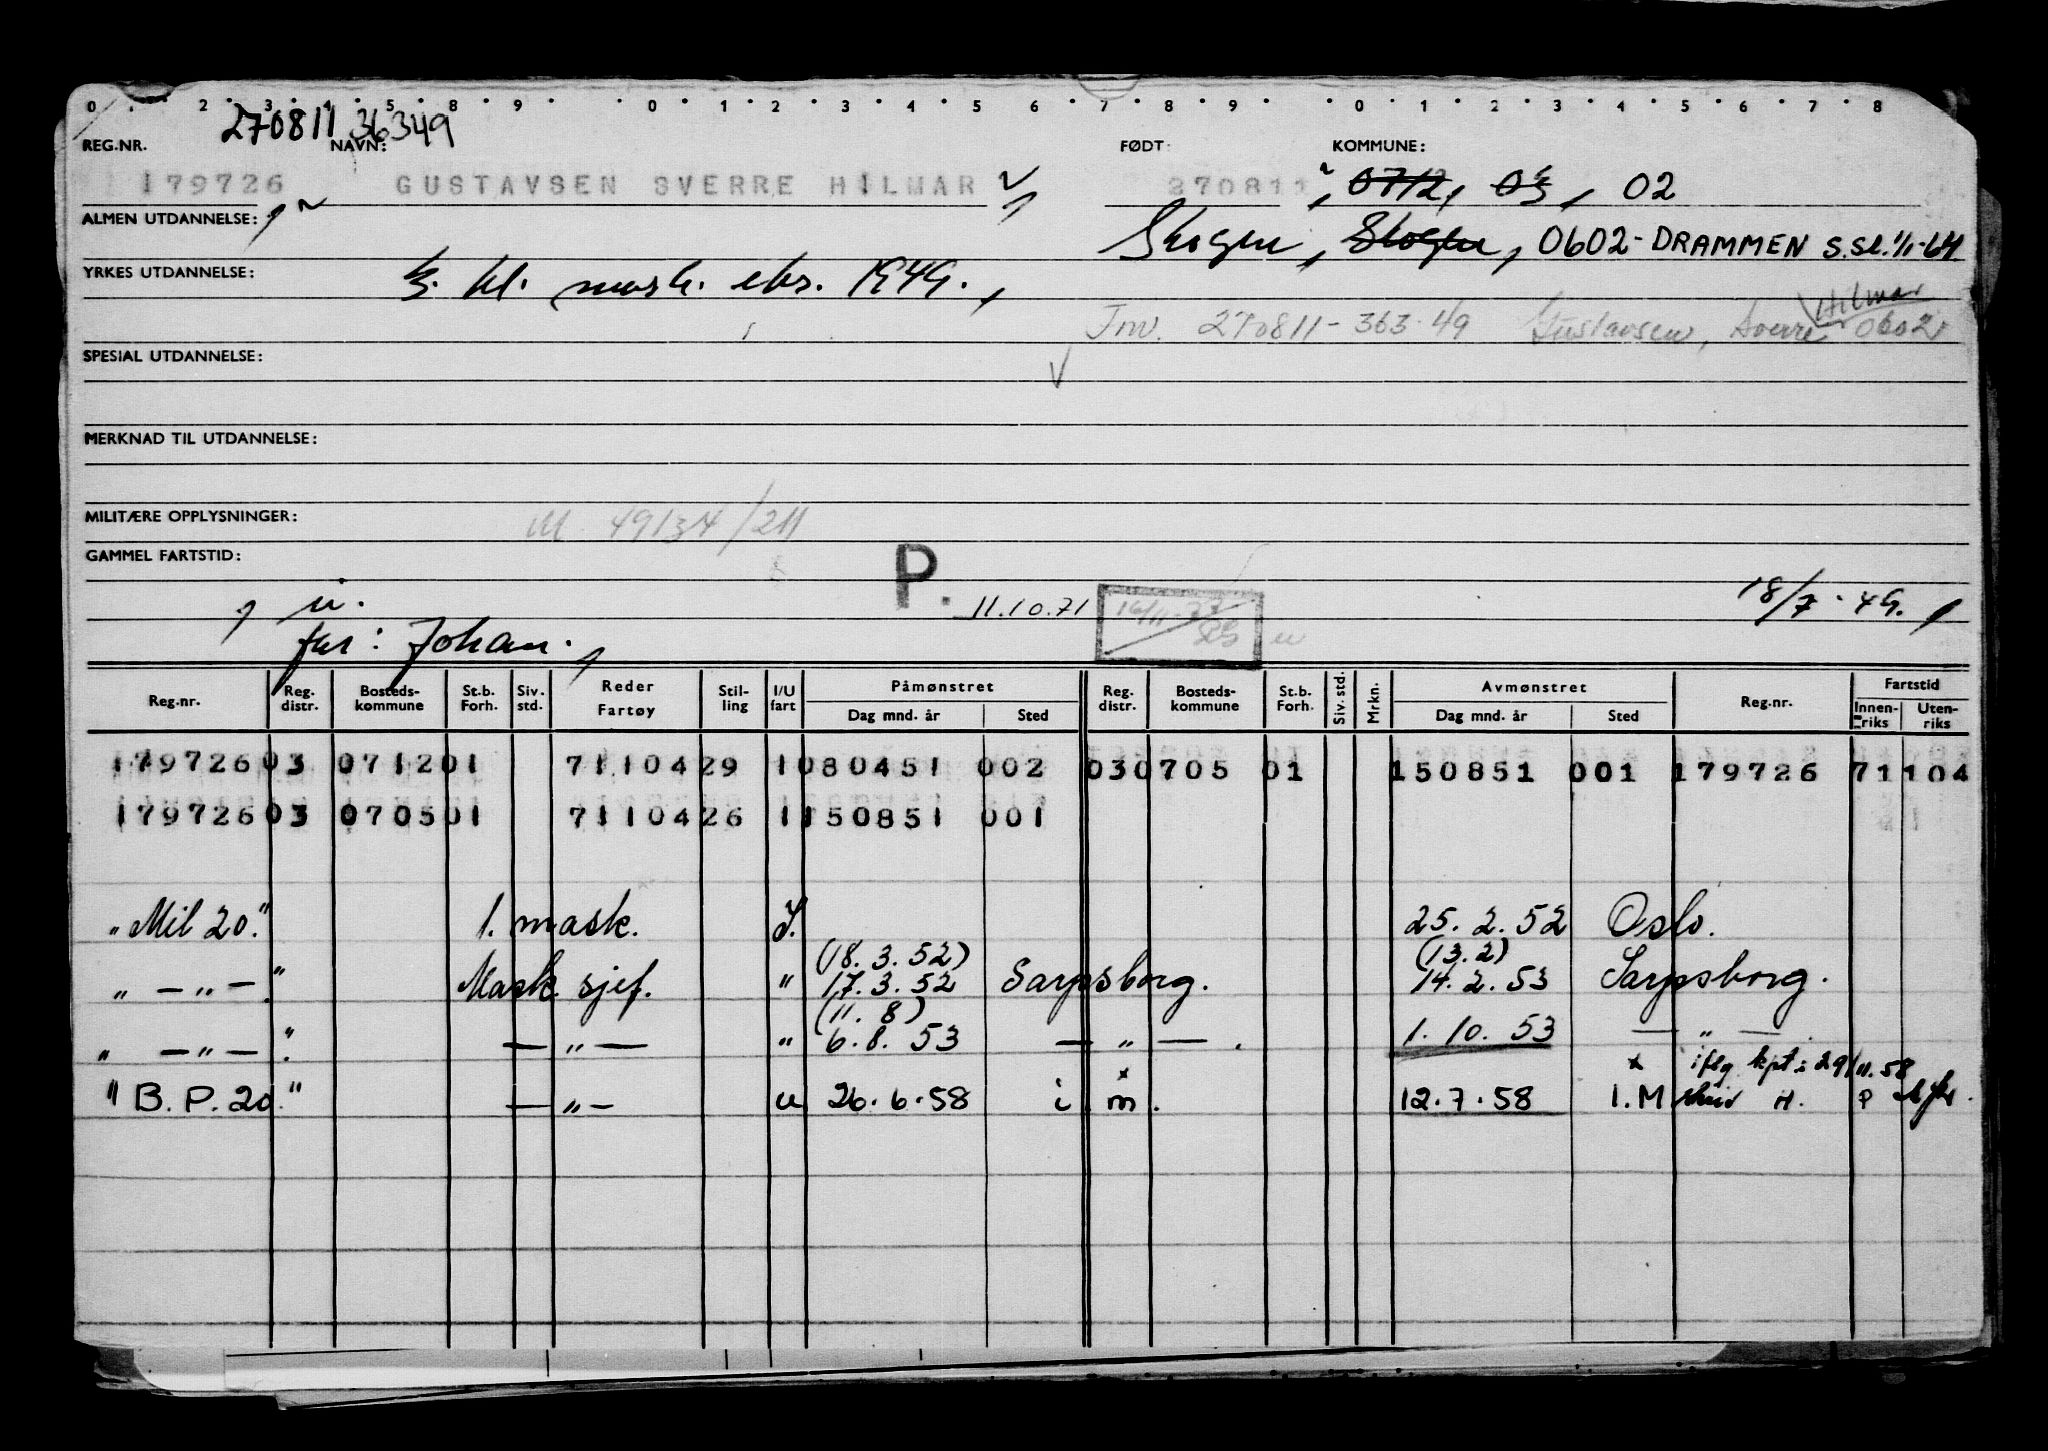 0 · · 2 · 3 · 4 · 5 · 8 · 9 · 0 · 1 · 2 · 3 · 4 · 5 · 6 · 7 · 8 · 9 · 0 · 1 · 2 · 3 · 4 · 5 · 6 · 7 · 8
270811 36349
REG.NR. NAVN: FØDT: KOMMUNE:
179726 GUSTAVSEN SVERRE HILMAR 270811, 0712, 03, 02
ALMEN UTDANNELSE:
Skogen, Skogen, 0602-DRAMMEN S.SL. 1/1-64
YRKES UTDANNELSE: 3. kl. mask. eks. 1949.
Hilmar
Inv. 270811-363·49 Gustavsen, Sverre 0602
SPESIAL UTDANNELSE:
MERKNAD TIL UTDANNELSE:
MILITÆRE OPPLYSNINGER: M 49134/211
GAMMEL FARTSTID:
P.
u. 11.10.71 18/7-49.
far: Johan.
Reg.nr. Reg. distr. Bosteds-kommune St.b. Forh. Siv. std. Reder Fartøy Stil-ling I/U fart Påmønstret Dag mnd. år Sted Reg. distr. Bosteds-kommune St.b. Forh. Siv. std. Mrkn. Avmønstret Dag mnd. år Sted Reg.nr. Fartstid Innen-riks Uten-riks
179726 03 0712 01 7110429 1 080451 002 03 0705 01 150851 001 179726 71104
179726 03 0705 01 7110426 1 150851 001
"Mil 20." 1. mask. I. 25. 2. 52 Oslo.
(18. 3. 52) (13. 2)
" — " — " Mask. sjef. " 17. 3. 52 Sarpsborg. 14. 2. 53 Sarpsborg.
(11. 8)
" — " — " — " — " 6. 8. 53 — " — . 1. 10. 53 — " —
x x iflg kpt i 29/11.58
"B. P. 20." — " — u 26. 6. 58 i m. 12. 7. 58 I. M skriv H. P